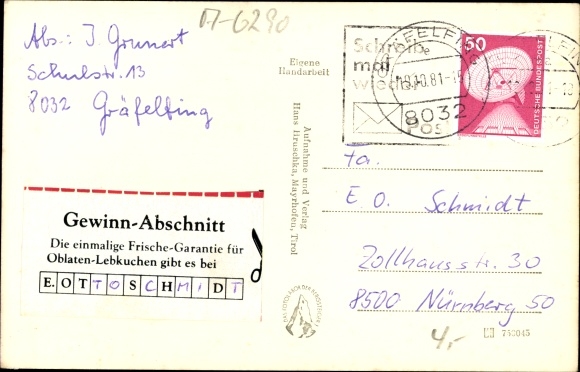 Π-6290
Abs.: I. Grunert
Schulstr. 13
8032 Gräfelfing
Eigene
Handarbeit
Aufnahme und Verlag
Hans Hruschka, Mayrhofen, Tirol
Schreib
mal
wieder
Post
8032
50
DEUTSCHE BUNDESPOST
Fa.
E. O. Schmidt
Zollhausstr. 30
8500 Nürnberg 50
Gewinn-Abschnitt
Die einmalige Frische-Garantie für
Oblaten-Lebkuchen gibt es bei
E. OTTO SCHMIDT
4,-
743045